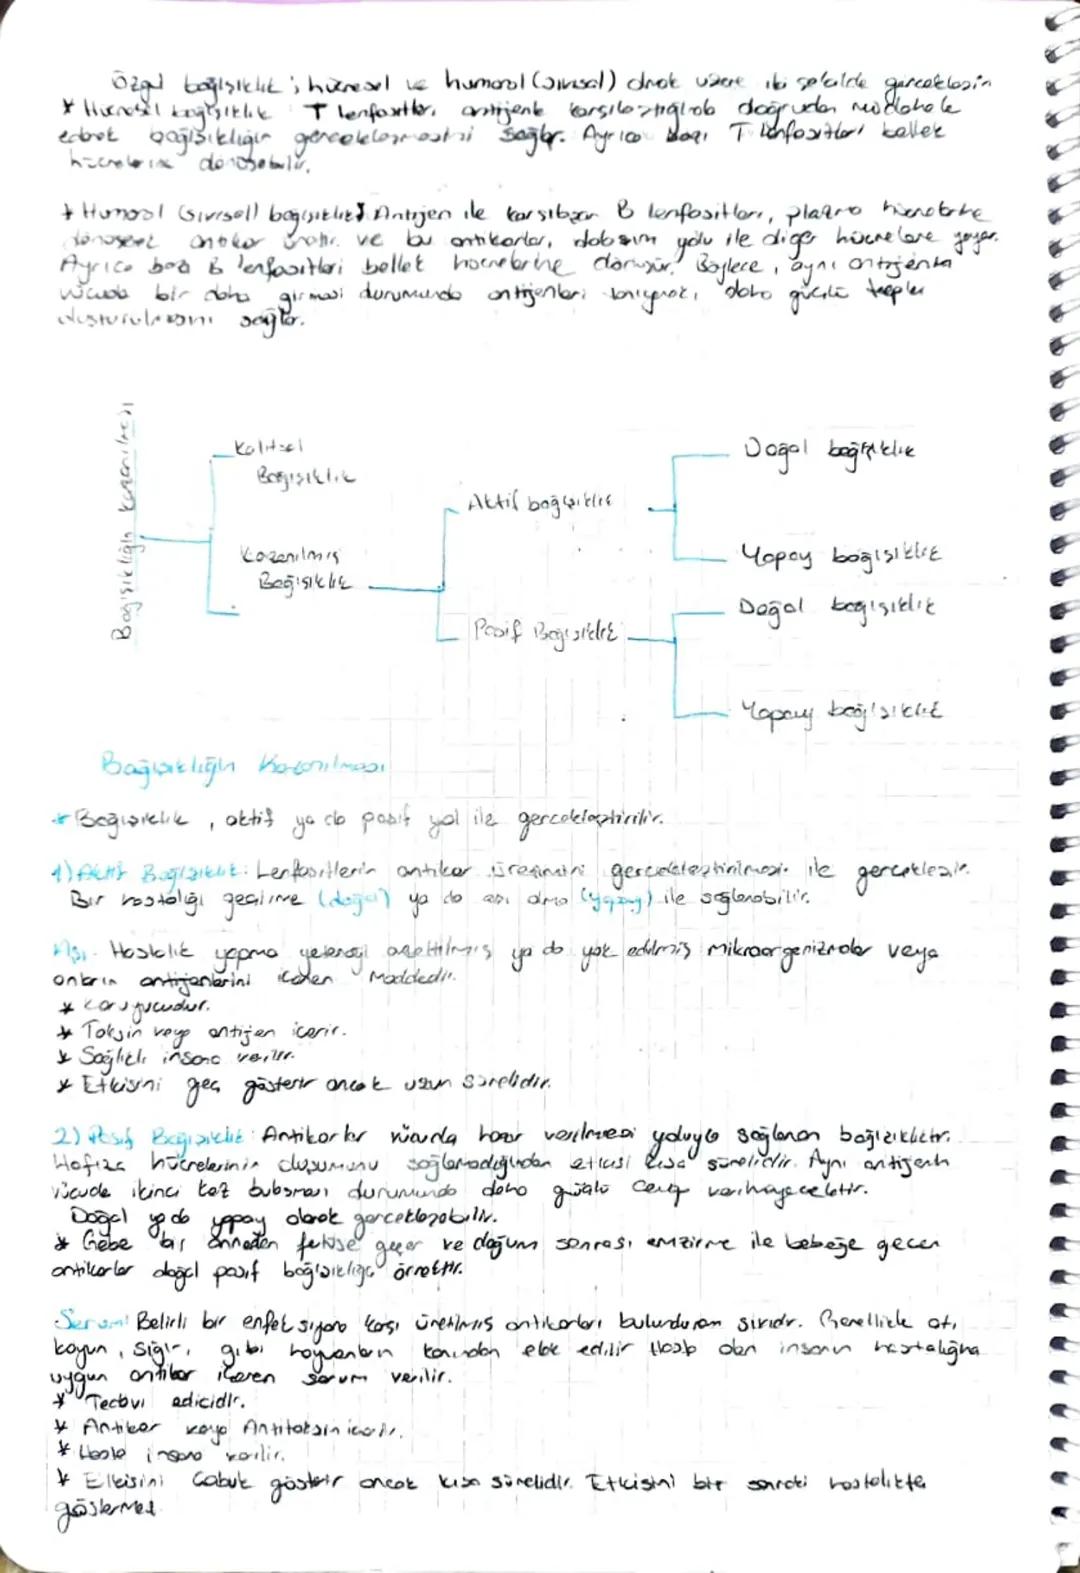 Özgül bağışıklık; hücresel ve humoral (sıvısal) olmak üzere iki şekilde gerçekleşir.
* Hücresel bağışıklık T lenfositler, antijenle karşılaştığında doğrudan müdahale
ederek bağışıklığın gerçekleşmesini sağlar. Ayrıca bazı T lenfositleri bellek
hücrelerine dönüşebilir.
* Humoral (sıvısal) bağışıklık: Antijen ile karşılaşan B lenfositleri, plazma hücrelerine
dönüşerek antikor üretir. ve bu antikorlar, dolaşım yolu ile diğer hücrelere yayar.
Ayrıca bazı B lenfositleri bellek hücrelerine dönüşür. Böylece, aynı antijenin
vücuda bir daha girmesi durumunda antijenleri tanıyarak, daha güçlü tepki
oluşturulmasını sağlar.
Bağışıklığın kazanılması
Kalıtsal
Bağışıklık
Kazanılmış
Bağışıklık
Aktif bağışıklık
Pasif Bağışıklık
Doğal bağışıklık
Yapay bağışıklık
Doğal bağışıklık
Yapay bağışıklık
Bağışıklığın Kazanılması
* Bağışıklık, aktif ya da pasif yol ile gerçekleştirilir.
1) Aktif Bağışıklık: Lenfositlerin antikor üretimini gerçekleştirilmesi ile gerçekleşir.
Bir hastalığı geçirme (doğal) ya da aşı olma (yapay) ile sağlanabilir.
Aşı: Hastalık yapma yeteneği azaltılmış ya da yok edilmiş mikroorganizmalar veya
onların antijenlerini içeren maddedir.
* Koruyucudur.
* Toksin veya antijen içerir.
* Sağlıklı insana verilir.
* Etkisini geç gösterir ancak uzun sürelidir.
2) Pasif Bağışıklık: Antikorlar vücuda hazır verilmesi yoluyla sağlanan bağışıklıktır.
Hafıza hücrelerinin oluşumunu sağlamadığından etkisi kısa sürelidir. Aynı antijenin
vücuda ikinci kez bulaşması durumunda daha güçlü cevap verilmeyecektir.
Doğal ya da yapay olarak gerçekleşebilir.
* Gebe bir anneden fetüse geçer ve doğum sonrası emzirme ile bebeğe geçen
antikorlar doğal pasif bağışıklığa örnektir.
Serum: Belirli bir enfeksiyona karşı üretilmiş antikorları bulunduran sıvıdır. Genellikle at,
koyun, sığır, gibi hayvanların kanından elde edilir Hasta olan insanın hastalığına
uygun antikor içeren serum verilir.
* Tedavi edicidir.
* Antikor veya Antitoksin içerir.
* Hasta insana verilir.
* Etkisini Çabuk gösterir ancak kısa sürelidir. Etkisini bir sonraki hastalıkta
göstermez.